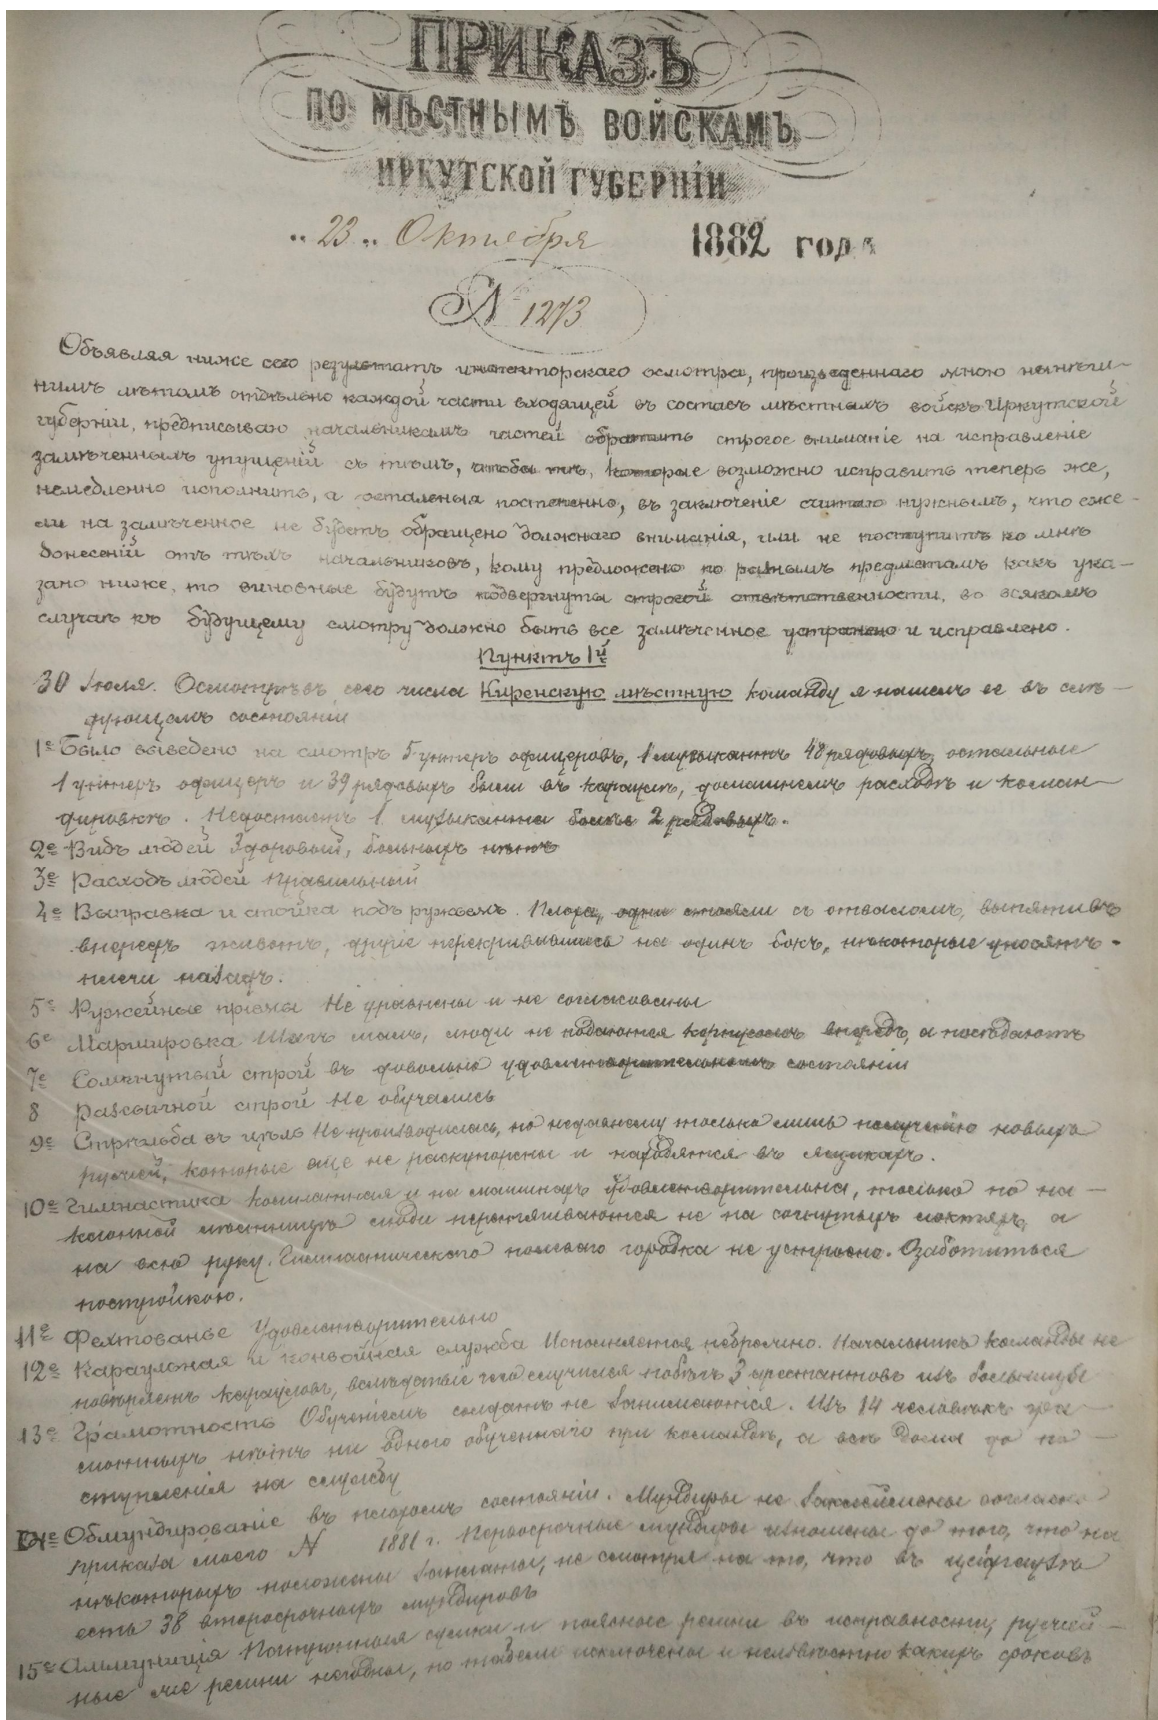 ПРИКАЗЪ
ПО МѢСТНЫМЪ ВОЙСКАМЪ
ИРКУТСКОЙ ГУБЕРНІИ
„ 23 „ Октября 1882 года
№ 1273
Объявляя ниже сего результатъ инспекторскаго осмотра, произведеннаго мною нынѣш-
нимъ лѣтомъ отдѣльно каждой части входящей въ составъ мѣстныхъ войскъ Иркутской
губерніи, предписываю начальникамъ частей обратить строгое вниманіе на исправленіе
замѣченныхъ упущеній съ тѣмъ, чтобы тѣ, которые возможно исправить теперь же,
немедленно исполнить, а остальныя постепенно, въ заключеніе считаю нужнымъ, что еже-
ли на замѣченное не будетъ обращено должнаго вниманія, или не поступитъ ко мнѣ
донесеній отъ тѣхъ начальниковъ, кому предложено по разнымъ предметамъ какъ ука-
зано ниже, то виновные будутъ подвергнуты строгой отвѣтственности, во всякомъ
случаѣ къ будущему смотру должно быть все замѣченное устранено и исправлено.
Пунктъ 1й
30 Іюля. Осмотрѣвъ сего числа Киренскую мѣстную команду я нашелъ ее въ слѣ-
дующемъ состояніи
1е Было выведено на смотръ 5 унтеръ офицеровъ, 1 музыкантъ 48 рядовыхъ, остальные
1 унтеръ офицеръ и 39 рядовыхъ были въ караулѣ, домашнемъ расходѣ и коман-
дировкѣ. Недостаетъ 1 музыканта болѣе 2 рядовыхъ.
2е Видъ людей Здоровый, больныхъ нѣтъ
3е Расходъ людей Правильный
4е Выправка и стойка подъ ружьемъ. Плоха, одни стояли съ отваломъ, выпятивъ
впередъ животъ, другіе перекривившись на одинъ бокъ, нѣкоторые уносятъ
плечи назадъ.
5е Ружейные пріемы Не уравнены и не согласованы
6е Маршировка Шагъ малъ, люди не подаются корпусомъ впередъ, а посѣдаютъ
7е Сомкнутый строй въ довольно удовлетворительномъ состояніи
8 Разсыпной строй Не обучались
9е Стрѣльба въ цѣль Не производилась, по недавнему только лишь полученію новыхъ
ружей, которые еще не раскупорены и находятся въ ящикахъ.
10е Гимнастика Комнатная и на машинахъ Удовлетворительна, только по на-
клонной лѣстницѣ люди перетягиваются не на согнутыхъ локтяхъ, а
на всю руку. Гимнастическаго полеваго городка не устроено. Озаботиться
постройкою.
11е Фехтованье Удовлетворительно
12е Караульная и конвойная служба Исполняется небрежно. Начальникъ команды не
повѣряетъ караулы, вслѣдствіе чего случился побѣгъ 3 арестантовъ изъ больницы
13е Грамотность Обученіемъ солдатъ не занимаются. Изъ 14 человѣкъ гра-
мотныхъ нѣтъ ни одного обученнаго при командѣ, а всѣ дома до по-
ступленія на службу
14е Обмундированіе въ плохомъ состояніи. Мундиры не заклеймены согласно
приказа моего № 1881 г. Первосрочные мундиры изношены до того, что на
нѣкоторыхъ положены заплаты, не смотря на то, что въ цейхгаузѣ
есть 38 второсрочныхъ мундировъ
15е Аммуниція Патронныя сумки и поясные ремни въ исправности, ружей-
ные же ремни негодны, по табели исключены и неизвѣстно какихъ сроковъ